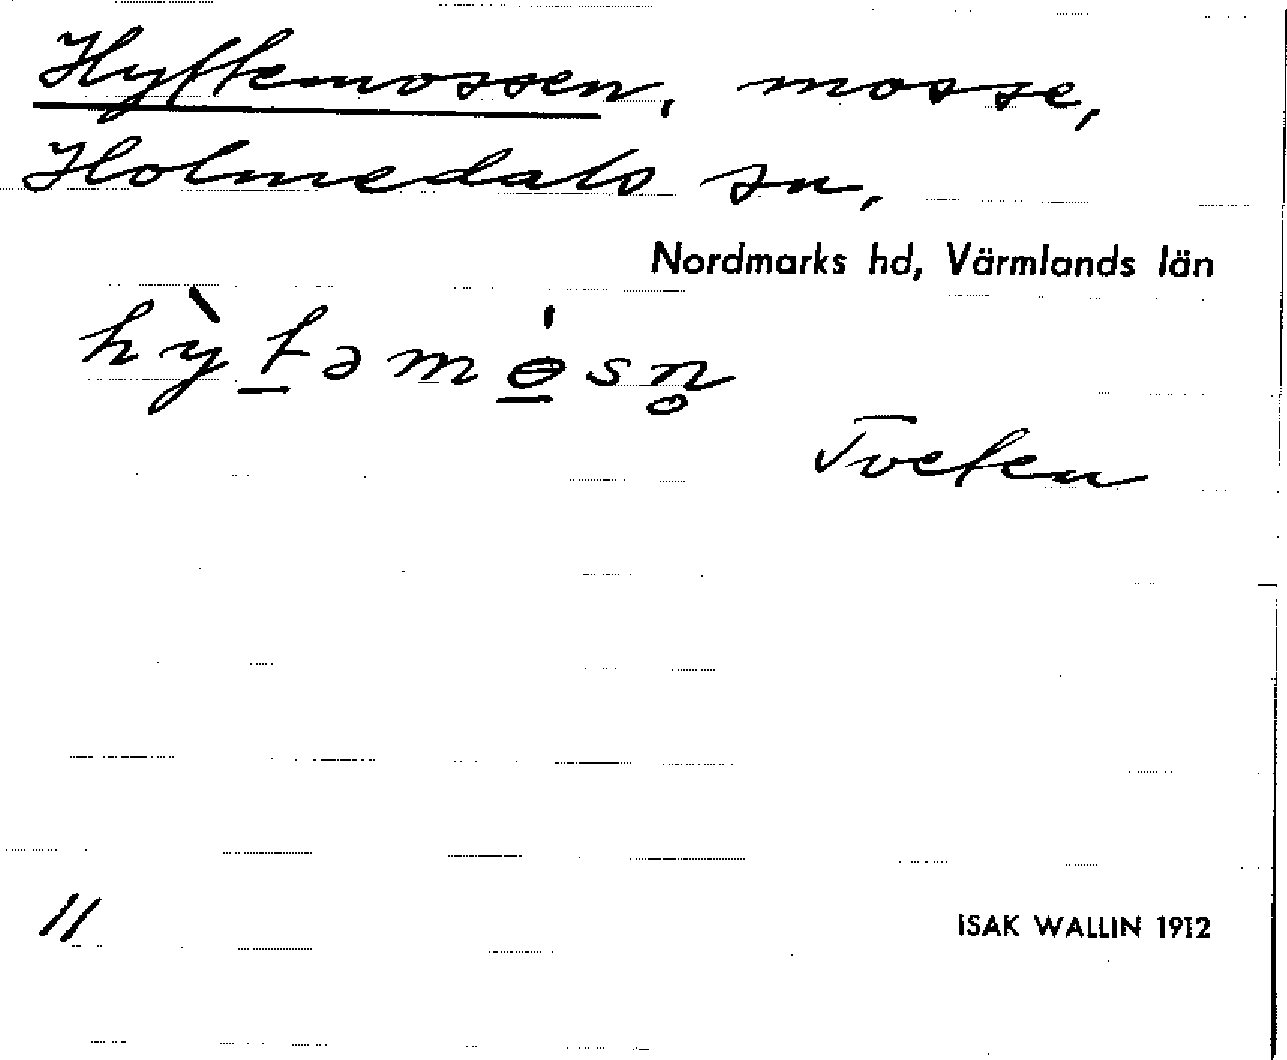 Hyttemossen, mosse,
Holmedals sn,
Nordmarks hd, Värmlands län
hy̏təmɵ́sn̥
Tveten
11
ISAK WALLIN 1912